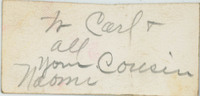 To Carl &
all
your Cousin
Naomi